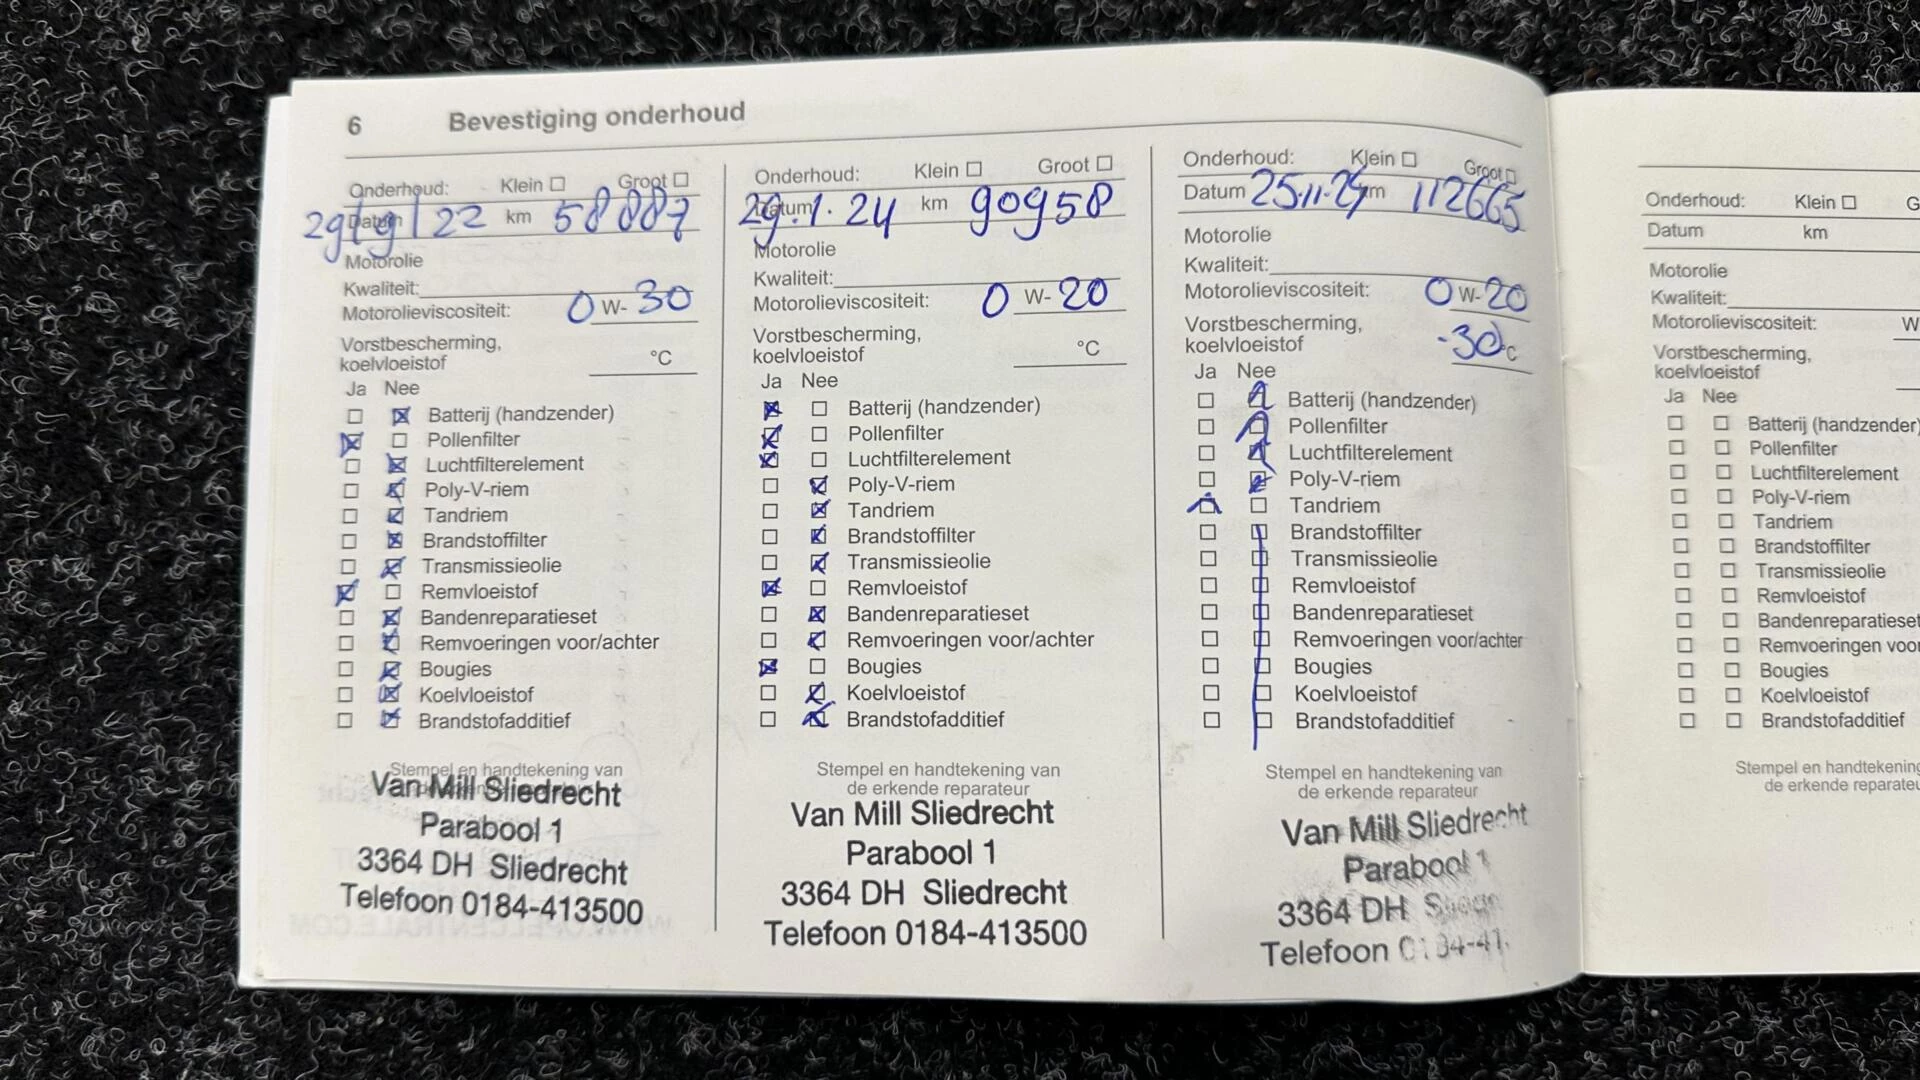 6 Bevestiging onderhoud
Onderhoud: Klein Groot
Datum 29/9/22 km 58887
Motorolie
Kwaliteit:
Motorolieviscositeit: 0 W- 30
Vorstbescherming,
koelvloeistof °C
Ja Nee
Batterij (handzender)
Pollenfilter
Luchtfilterelement
Poly-V-riem
Tandriem
Brandstoffilter
Transmissieolie
Remvloeistof
Bandenreparatieset
Remvoeringen voor/achter
Bougies
Koelvloeistof
Brandstofadditief
Stempel en handtekening van
Van Mill Sliedrecht
Parabool 1
3364 DH Sliedrecht
Telefoon 0184-413500
Onderhoud: Klein Groot
Datum 29.1.24 km 90958
Motorolie
Kwaliteit:
Motorolieviscositeit: 0 W- 20
Vorstbescherming,
koelvloeistof °C
Ja Nee
Batterij (handzender)
Pollenfilter
Luchtfilterelement
Poly-V-riem
Tandriem
Brandstoffilter
Transmissieolie
Remvloeistof
Bandenreparatieset
Remvoeringen voor/achter
Bougies
Koelvloeistof
Brandstofadditief
Stempel en handtekening van
de erkende reparateur
Van Mill Sliedrecht
Parabool 1
3364 DH Sliedrecht
Telefoon 0184-413500
Onderhoud: Klein Groot
Datum 25.11.24 km 112665
Motorolie
Kwaliteit:
Motorolieviscositeit: 0 W- 20
Vorstbescherming,
koelvloeistof -30 °C
Ja Nee
Batterij (handzender)
Pollenfilter
Luchtfilterelement
Poly-V-riem
Tandriem
Brandstoffilter
Transmissieolie
Remvloeistof
Bandenreparatieset
Remvoeringen voor/achter
Bougies
Koelvloeistof
Brandstofadditief
Stempel en handtekening van
de erkende reparateur
Van Mill Sliedrecht
Parabool 1
3364 DH
Telefoon
Onderhoud: Klein G
Datum km
Motorolie
Kwaliteit:
Motorolieviscositeit: W
Vorstbescherming,
koelvloeistof
Ja Nee
Batterij (handzender)
Pollenfilter
Luchtfilterelement
Poly-V-riem
Tandriem
Brandstoffilter
Transmissieolie
Remvloeistof
Bandenreparatieset
Remvoeringen voor
Bougies
Koelvloeistof
Brandstofadditief
Stempel en handtekening
de erkende reparate